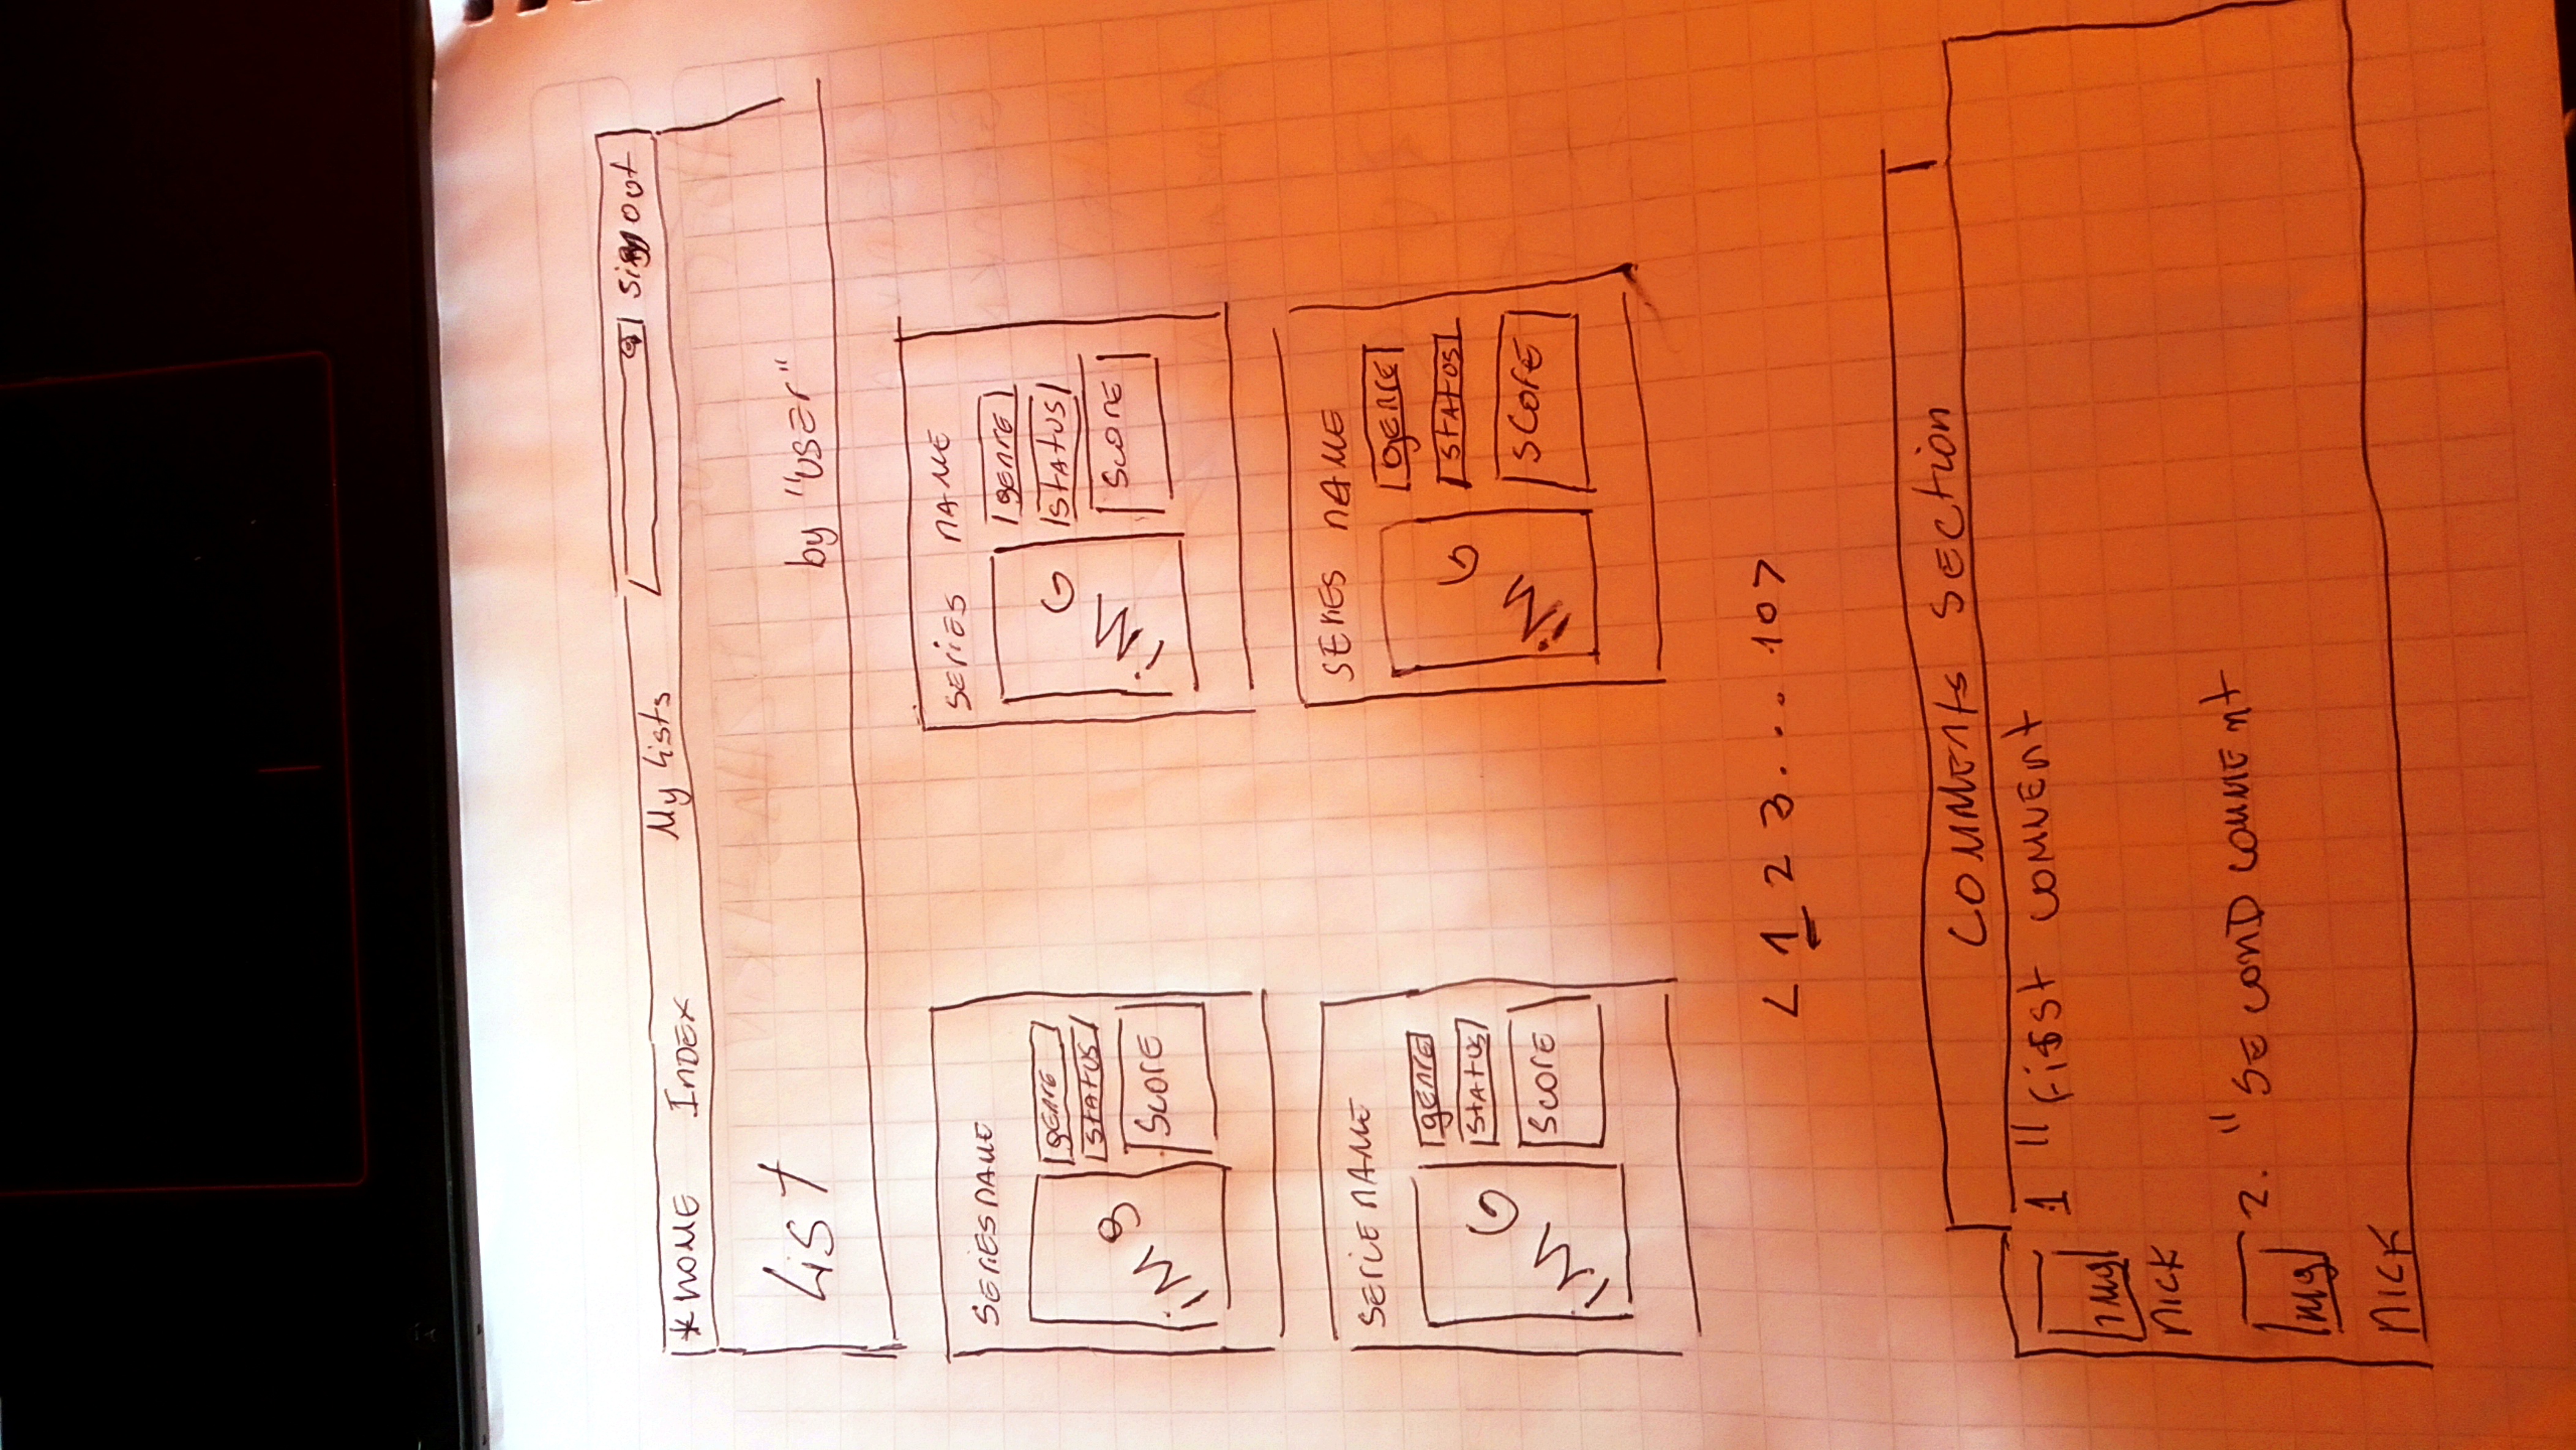 *HOME INDEX My Lists Sign out
List by "USEr"
SEriESnAME
genre
status
iMg
SCOrE
SEriES nAME
genre
status
iMG
SCOrE
SEriEnAME
genre
status
iMG
SCOrE
SEriES nAME
genre
status
iMG
SCOrE
< 1 2 3 . . . 10 >
COMMEnts SECtion
1 "First COMMEnt
img
nick
2. "SECOnD COMMEnt
img
nick